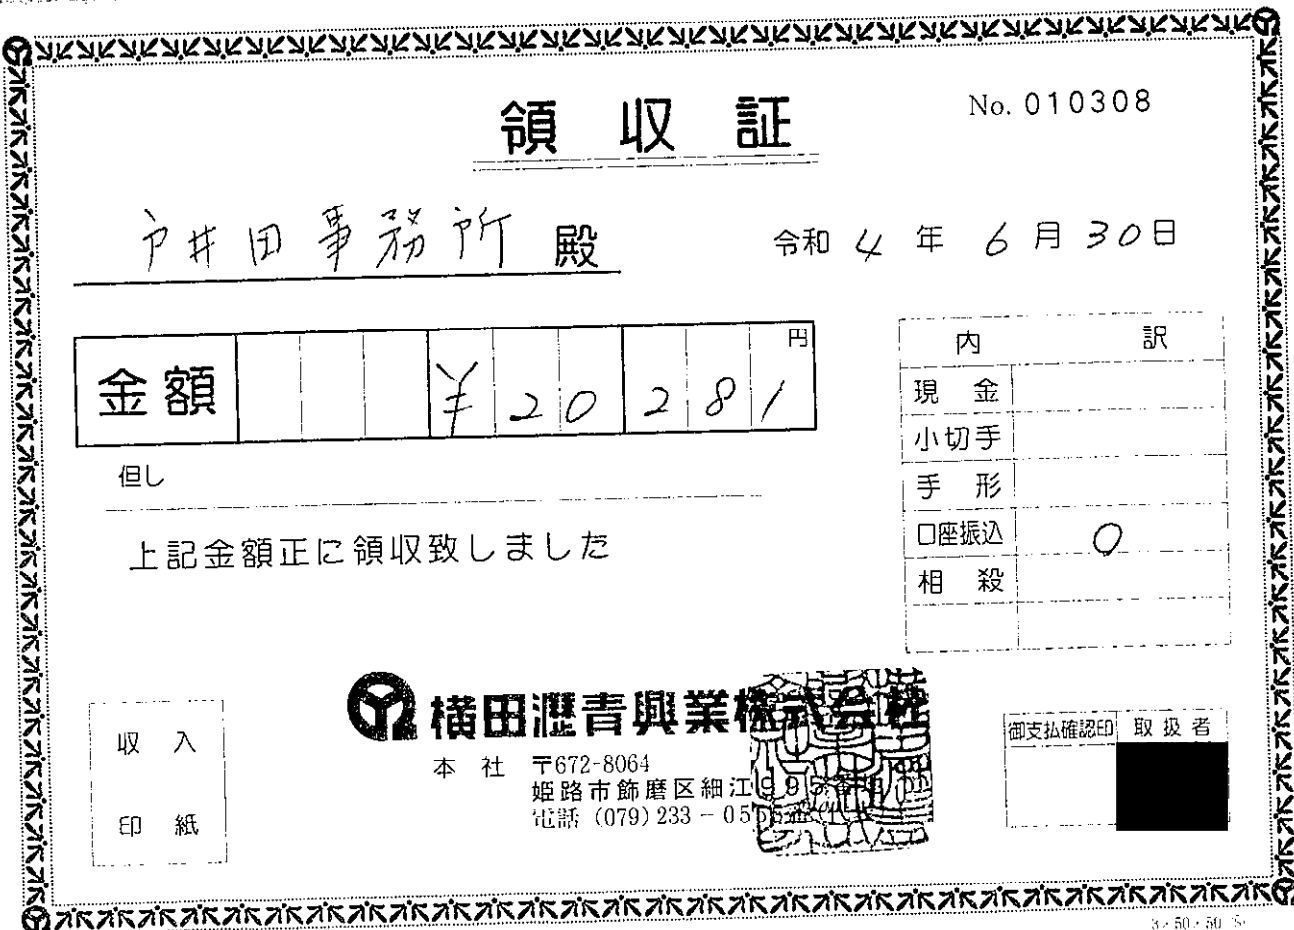 領収証
No. 010308
戸井田事務所 殿
令和 4 年 6 月 30 日
金額 ¥20281 円
但し
上記金額正に領収致しました
内訳
現金
小切手
手形
口座振込 ○
相殺
横田瀝青興業株式会社
本社 〒672-8064
姫路市飾磨区細江995番地
電話 (079) 233-05
収入
印紙
御支払確認印 取扱者